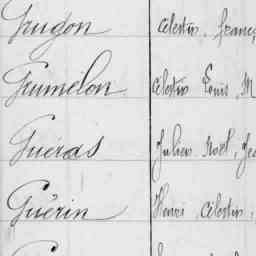 Grugon Célestin, Franç
Grumelon Célestin Louis, M
Guéras Julien Noël, Je
Guérin Henri, Célestin,